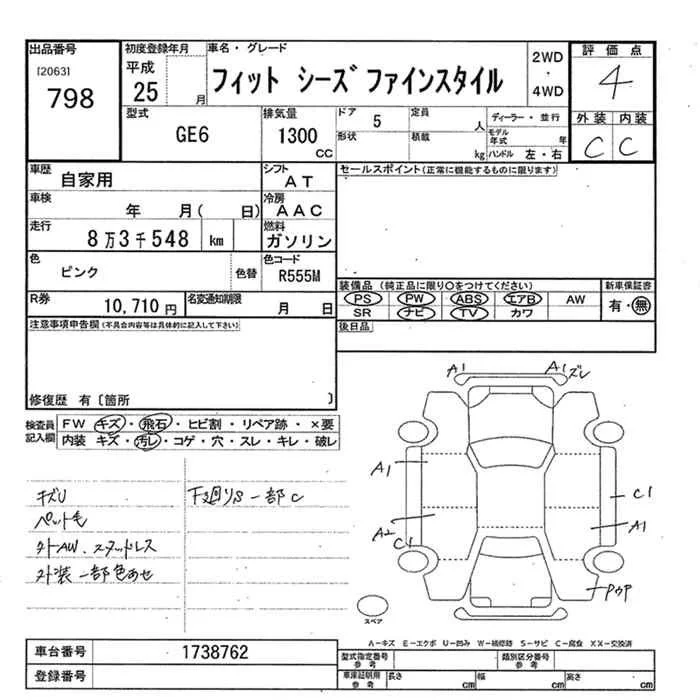 出品番号
[2063]
798
初度登録年月
平成
25 月
車名・グレード
フィット シーズ ファインスタイル
2WD
・
4WD
評価点
4
外装 内装
C C
型式
GE6
排気量
1300
CC
ドア
5
形状
定員
人
積載
kg
ディーラー・並行
モデル
年式 年
ハンドル 左・右
車歴
自家用
シフト
AT
車検
年 月( 日)
冷房
AAC
走行
8万3千548 km
燃料
ガソリン
色
ピンク
色替
色コード
R555M
R券
10,710円
名変通知期限
月 日
セールスポイント(正常に機能するものに限ります)
装備品 (純正品に限り○をつけてください)
新車保証書
PS PW ABS エアB AW
SR ナビ TV カワ
有・無
後日品
注意事項申告欄(不具合内容等は具体的に記入して下さい)
修復歴 有〔箇所 〕
検査員
記入欄
FW キズ・飛石・ヒビ割・リペア跡・×要
内装 キズ・汚レ・コゲ・穴・スレ・キレ・破レ
キズU
ペット毛
外AW、スタッドレス
外装一部色あせ
下廻りS 一部C
A1
A1 ズレ
A1
A2
C1
C1
A1
PウP
スペア
A−キズ E−エクボ U−凹み W−補修跡 S−サビ C−腐食 XX−交換済
車台番号
1738762
登録番号
型式指定番号
参考
類別区分番号
参考
車庫証明用
参考
長さ cm
幅 cm
高さ cm